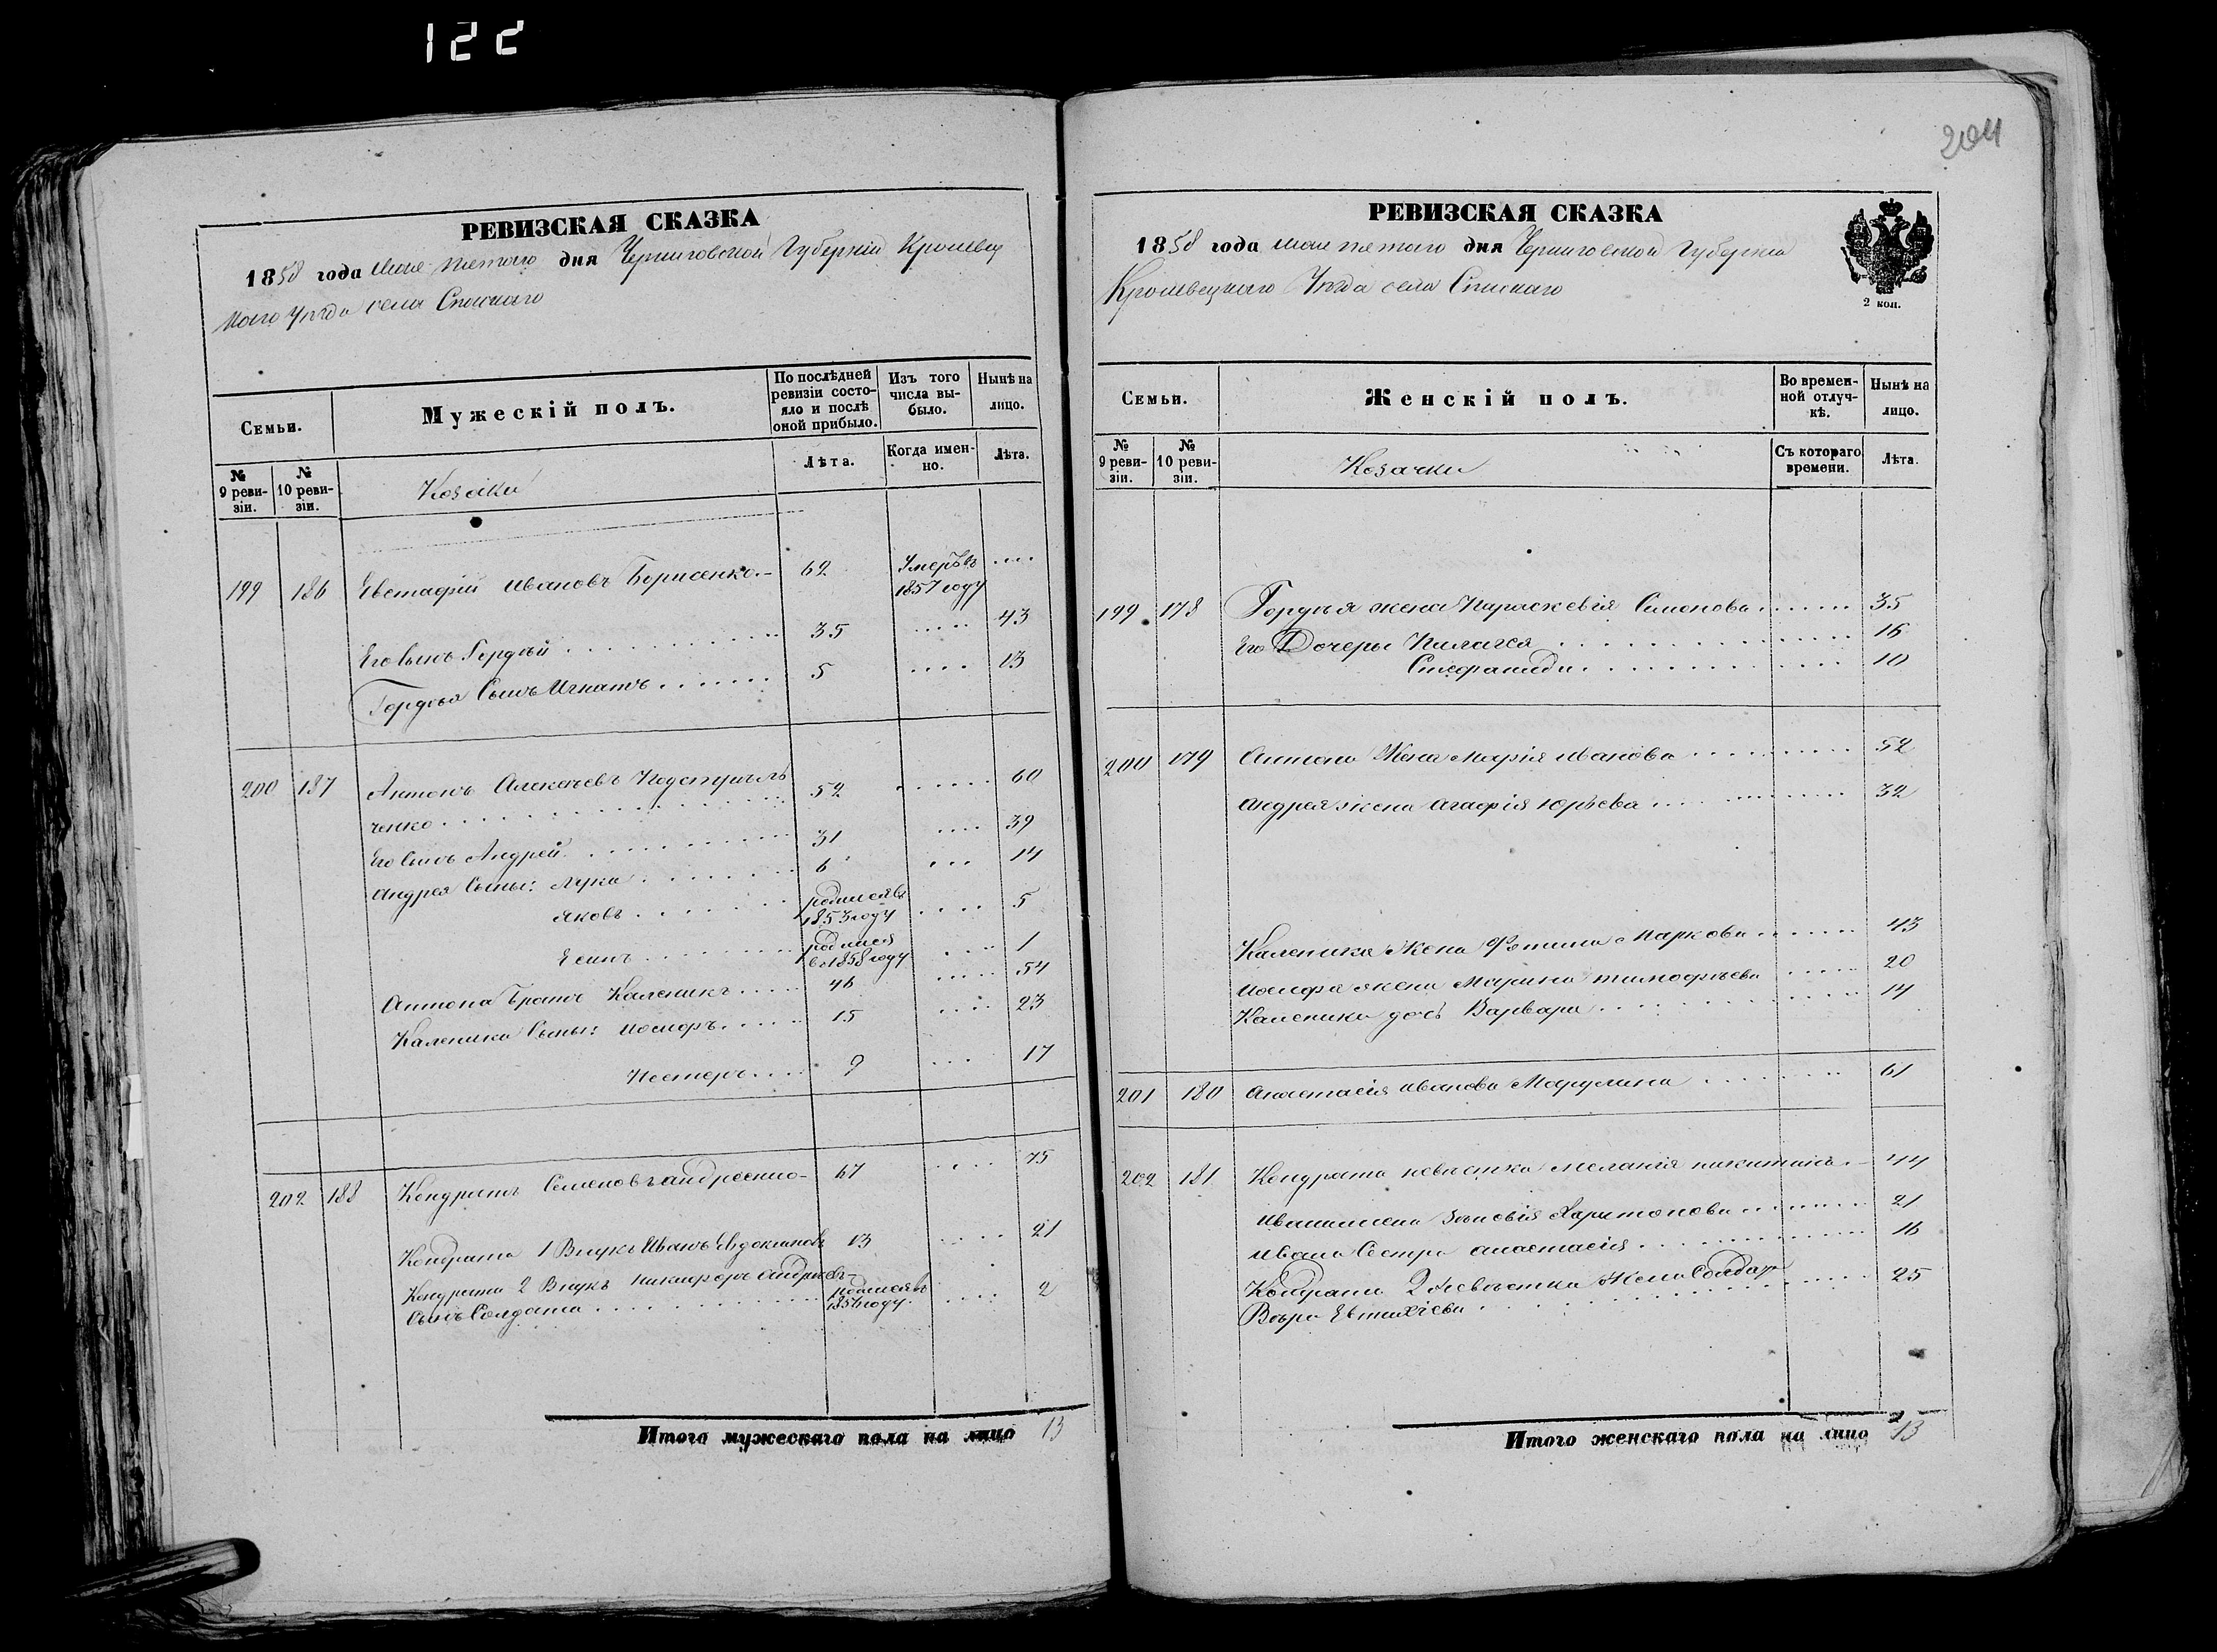 122
204
РЕВИЗСКАЯ СКАЗКА
1858 года мая пятого дня Черниговской Губерніи Кролевец
каго Уѣзда села Спаскаго
Семьи.
Мужескій полъ.
По послѣдней ревизіи состояло и послѣ оной прибыло.
Изъ того числа выбыло.
Нынѣ на лицо.
№ 9 ревизіи.
№ 10 ревизіи.
Козаки
Лѣта.
Когда именно.
Лѣта.
199 186 Евстафій Ивановъ Борисенко 62 Умеръ въ 1857 году
Его сынъ Гордѣй 35 43
Гордѣя Сынъ Игнатъ 5 13
200 187 Антонъ Алексѣевъ
ченко 52 60
Его Сынъ Андрей 31 39
Андрея Сыны: Лука 6 14
Яковъ родился въ 1853 году 5
родился въ 1858 году 1
Антона Братъ Каленикъ 46 54
Каленика Сыны: Иосифъ 15 23
Нестеръ 9 17
202 188 Кондратъ Семеновъ Андреенко 67 75
Кондрата 1 Внукъ Иванъ Евдокимовъ 13 21
Кондрата 2 Внукъ Никифоръ Андреевъ
Сынъ Солдата родился въ 1857 году 2
Итого мужескаго пола на лицо 13
РЕВИЗСКАЯ СКАЗКА
1858 года мая пятого дня Черниговской Губерніи
Кролевецкаго Уѣзда села Спаскаго
2 коп.
Семьи.
Женскій полъ.
Во временной отлучкѣ.
Нынѣ на лицо.
№ 9 ревизіи.
№ 10 ревизіи.
Козачки
Съ котораго времени.
Лѣта.
199 178 Гордѣя жена Параскевія Семенова 35
Его Дочеры Пелагея 16
Стефанида 10
200 179 Антона Жена Марія Иванова 52
Андрея жена Агафія Юрьева 32
Каленика Жена Фотина Маркова 43
Иосифа жена Марина Тимофѣева 20
Каленика дочь Варвара 14
201 180 Анастасія Иванова 61
202 181 Кондрата невистка Меланія Никитина 44
Ивана жена Зѣновія Харитонова 21
Ивана Сестра Анастасія 16
Кондрата 2 Невѣстка Жена Солдат
Вѣра Евтихіева 25
Итого женскаго пола на лицо 13